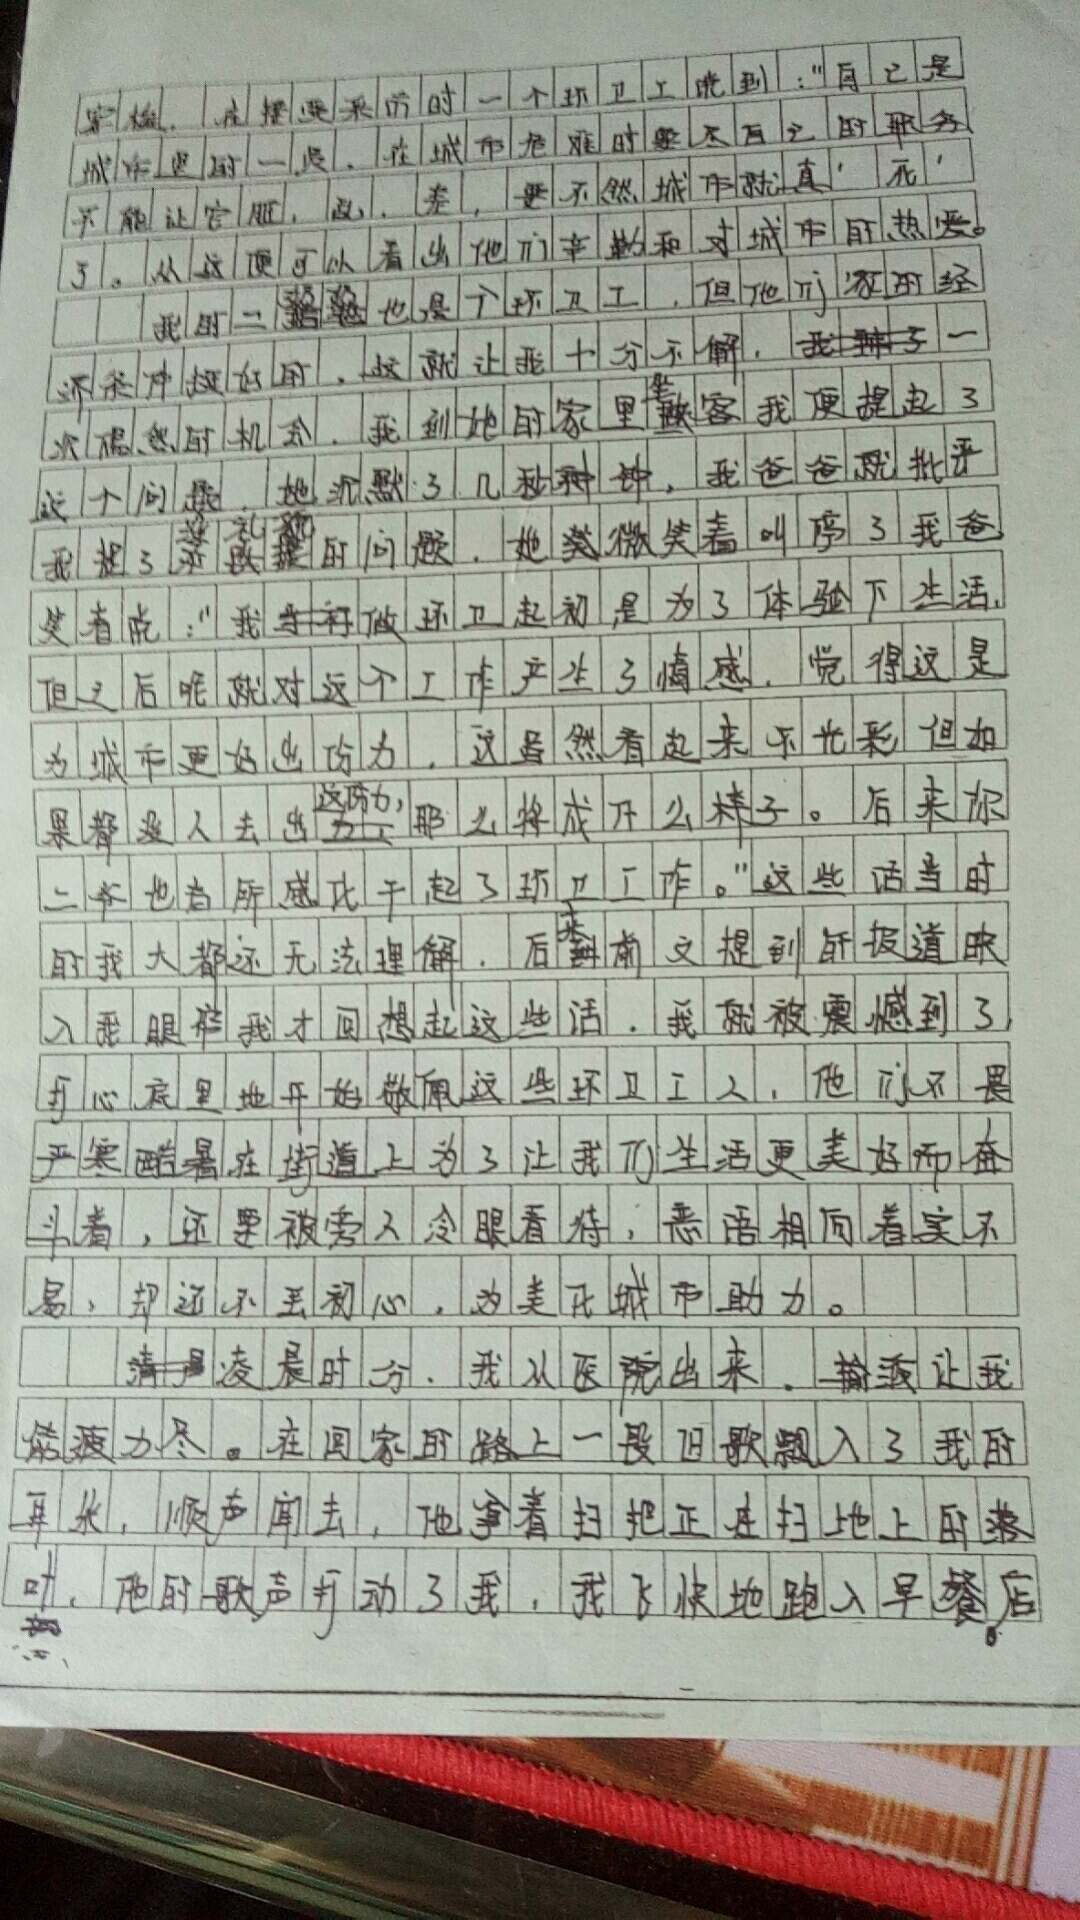 在接受采访时一个环卫工说到:"自己是
城市里的一员,在城市危难时要尽自己的职务
不能让它脏,乱,差,要不然城市就真'死'
了。从这便可以看出他们辛勤和对城市的热爱。
我的二也是个环卫工,但他们家的经
济条件挺好的,这就让我十分不解,一
次偶然的机会,我到她的家里坐客我便提起了
这个问题,她沉默了几秒钟,我爸爸就批评
我提了没礼貌的问题,她微笑着叫停了我爸
笑着说:"我做环卫起初是为了体验下生活,
但之后呢就对这个工作产生了情感,觉得这是
为城市更好出份力,这虽然看起来不光彩但如
果都没人去出这份力,那么将成什么样子。后来你
二爷也有所感化干起了环卫工作。"这些话当时
的我大都还无法理解,后来前文提到的报道映
入我眼帘我才回想起这些话,我就被震憾到了,
打心底里地开始敬佩这些环卫工人,他们不畏
严寒酷暑在街道上为了让我们生活更美好而奋
斗着,还要被旁人冷眼看待,恶语相向着实不
易,却还不忘初心,为美化城市助力。
凌晨时分,我从医院出来,输液让我
疲力尽。在回家的路上一段旧歌飘入了我的
耳朵,顺声闻去,他拿着扫把正在扫地上的落
叶,他的歌声打动了我,我飞快地跑入早餐店。